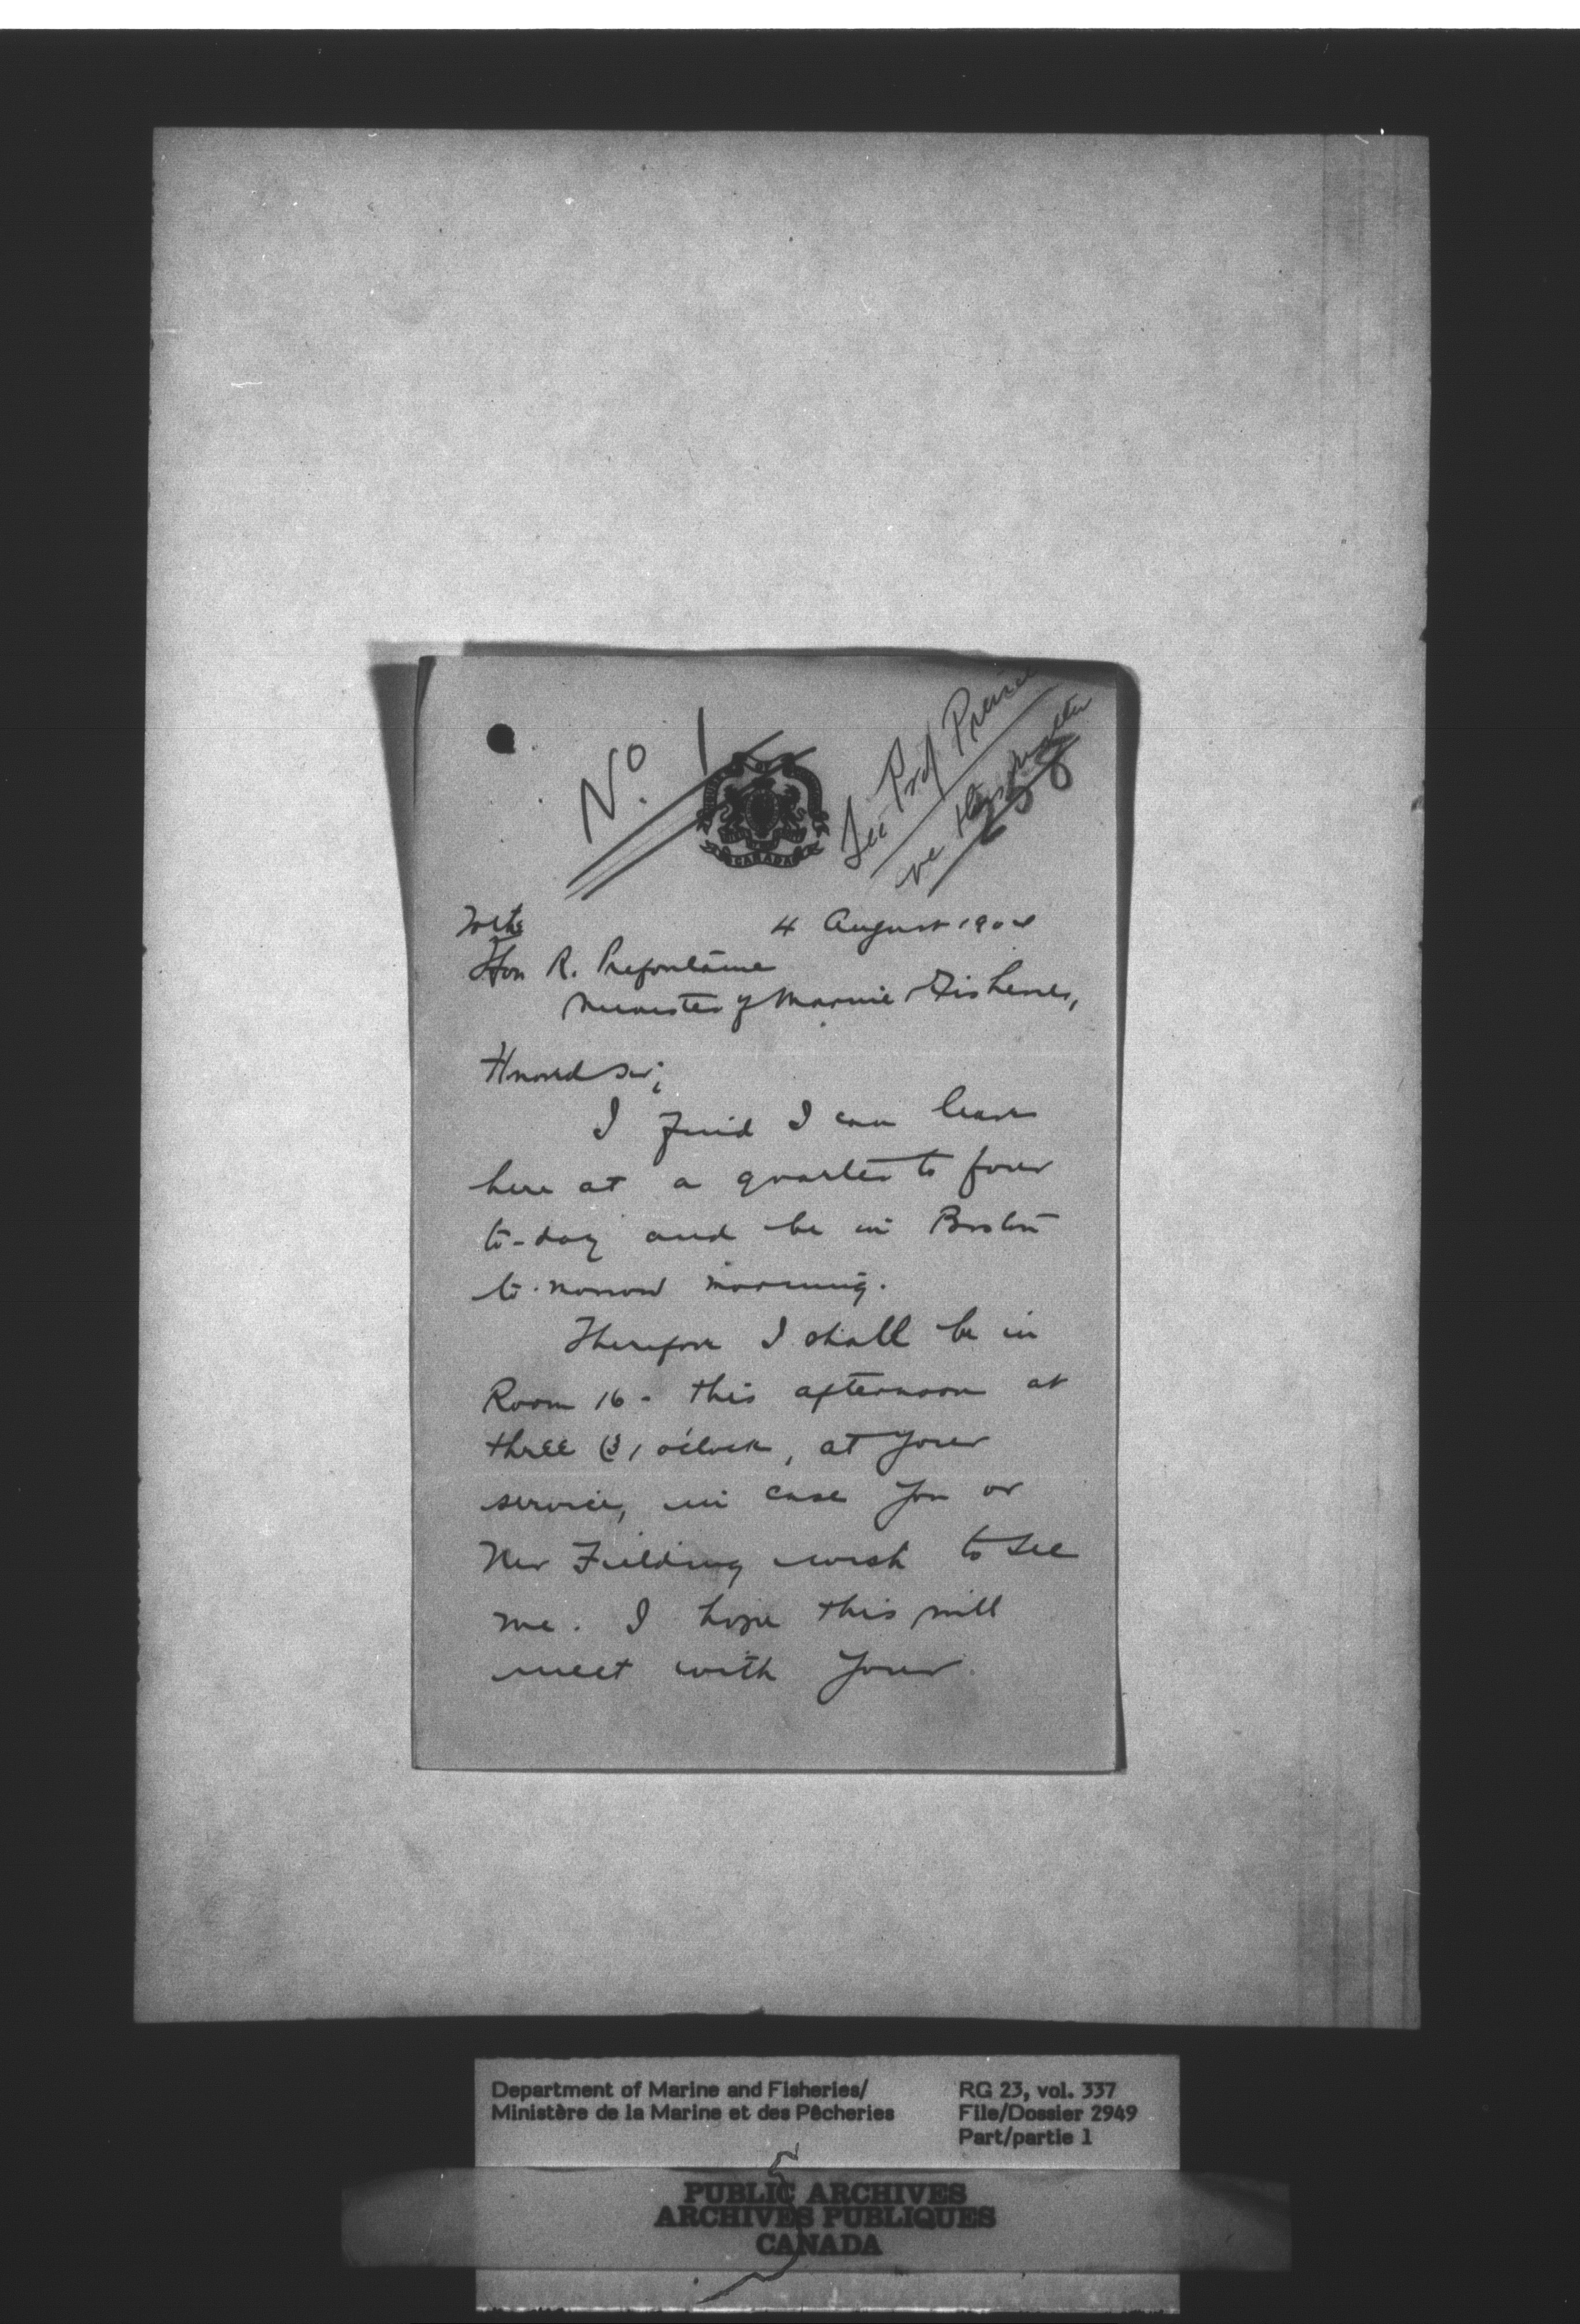 No. 1
See Prof Prince
re this matter
CANADA
To the
4 August 1904
Hon R. Prefontaine
Minister of Marine & Fisheries,
Honored Sir;
I find I can leave
here at a quarter to four
to-day and be in Boston
to-morrow morning.
Therefore I shall be in
Room 16 - this afternoon at
three (3) o'clock, at your
service, in case you or
Mr Fielding wish to see
me. I hope this will
meet with your
Department of Marine and Fisheries/
Ministère de la Marine et des Pêcheries
RG 23, vol. 337
File/Dossier 2949
Part/partie 1
PUBLIC ARCHIVES
ARCHIVES PUBLIQUES
CANADA